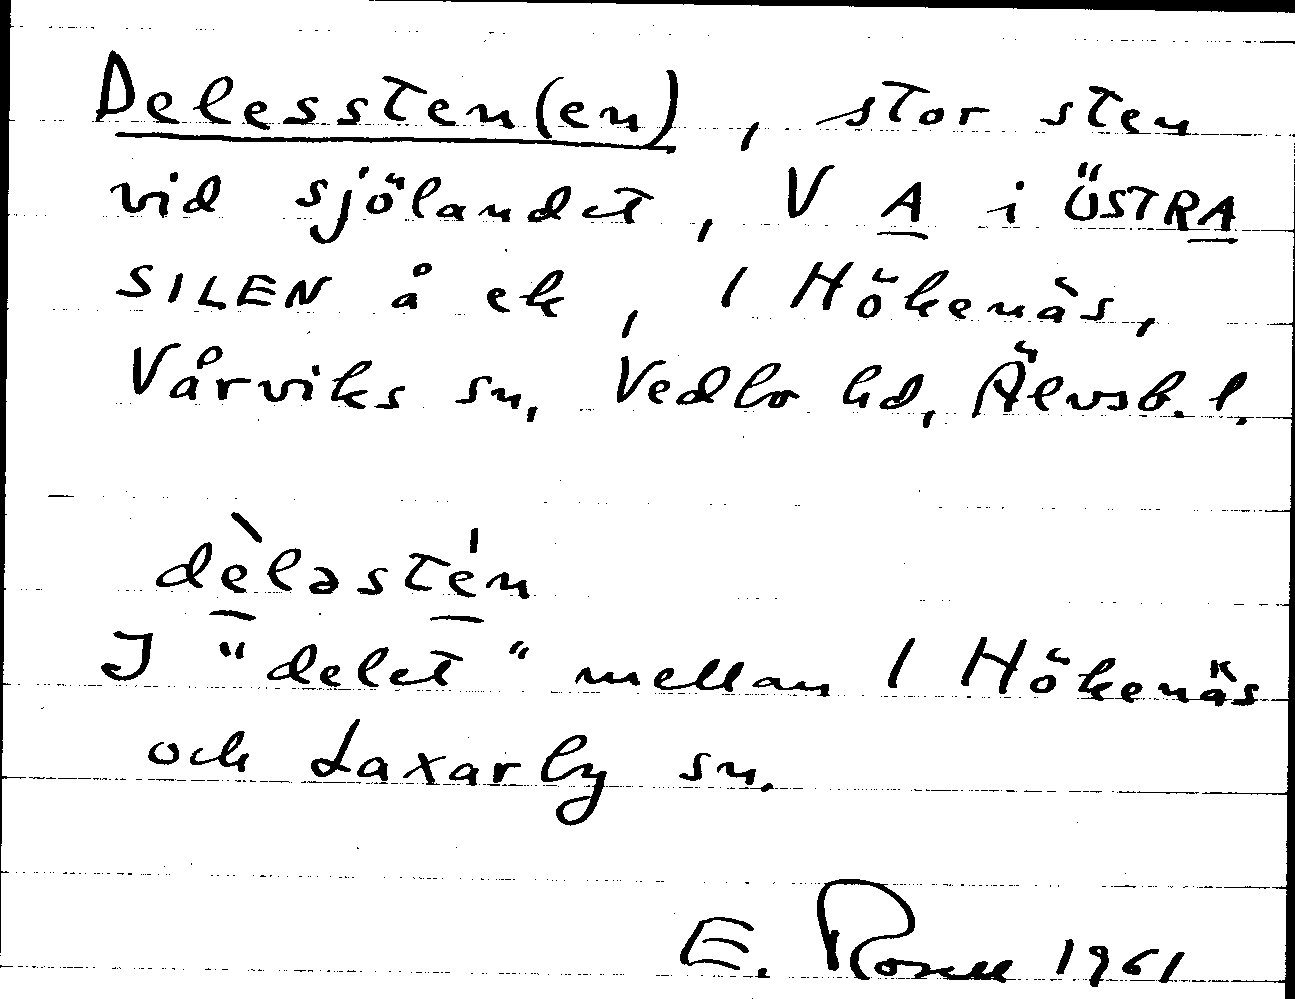 Delessten(en), stor sten
vid sjölandet, V A i ÖSTRA
SILEN å ek, 1 Hökenäs,
Vårviks sn, Vedbo hd, Älvsb. l.
dèləsté̱n
I "delet" mellan 1 Hökenäs
och Laxarby sn.
E. Rosell 1961